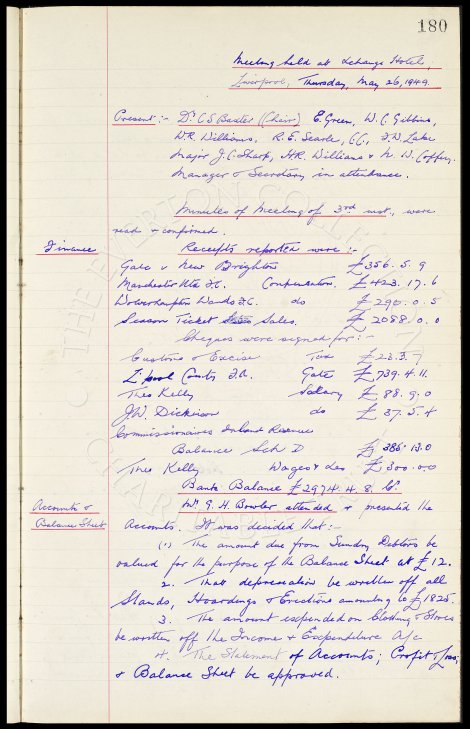 180
Meeting held at Exchange Hotel,
Liverpool, Thursday, May 26, 1949.
Present :- Dr C.S. Baxter (Chair) E. Green, W.C. Gibbins,
W.R. Williams, R.E. Searle, F.W. Lake
Major J.C. Sharp, H.R. Williams & N.W. Coffey.
Manager & Secretary in attendance.
Minutes of Meeting of 3rd inst. were
read & confirmed.
Finance Receipts reported were :-
Gate v New Brighton £356. 5. 9
Manchester Utd F.C. Compensation £423. 17. 6
Wolverhampton Wands F.C. do £290. 0. 5
Season Ticket Sales. £2088. 0. 0
Cheques were signed for :-
Customs & Excise Tax £23. 3. 7
L'pool County F.A. Gate £739. 4. 11.
Theo Kelly Salary £88. 9. 0
J.W. Dickinson do £37. 5. 4
Commissionaires Inland Revenue
Balance Sch D £386. 13. 0
Theo Kelly Wages &c £300. 0. 0
Bank Balance £2974. 4. 8. Cr.
Accounts & Mr. G.H. Bowler attended & presented the
Balance Sheet Accounts. It was decided that :-
(1) The amount due from Sundry Debtors be
valued for the purpose of the Balance Sheet at £12.
2. That depreciation be written off all
Stands, Hoardings & Erections amounting to £1825.
3. The amount expended on Clothing & Stores
be written off the Income & Expenditure A/c
4. The Statement of Accounts; Profit & Loss;
& Balance Sheet be approved.
THE EVERTON COLLECTION
CHARITABLE